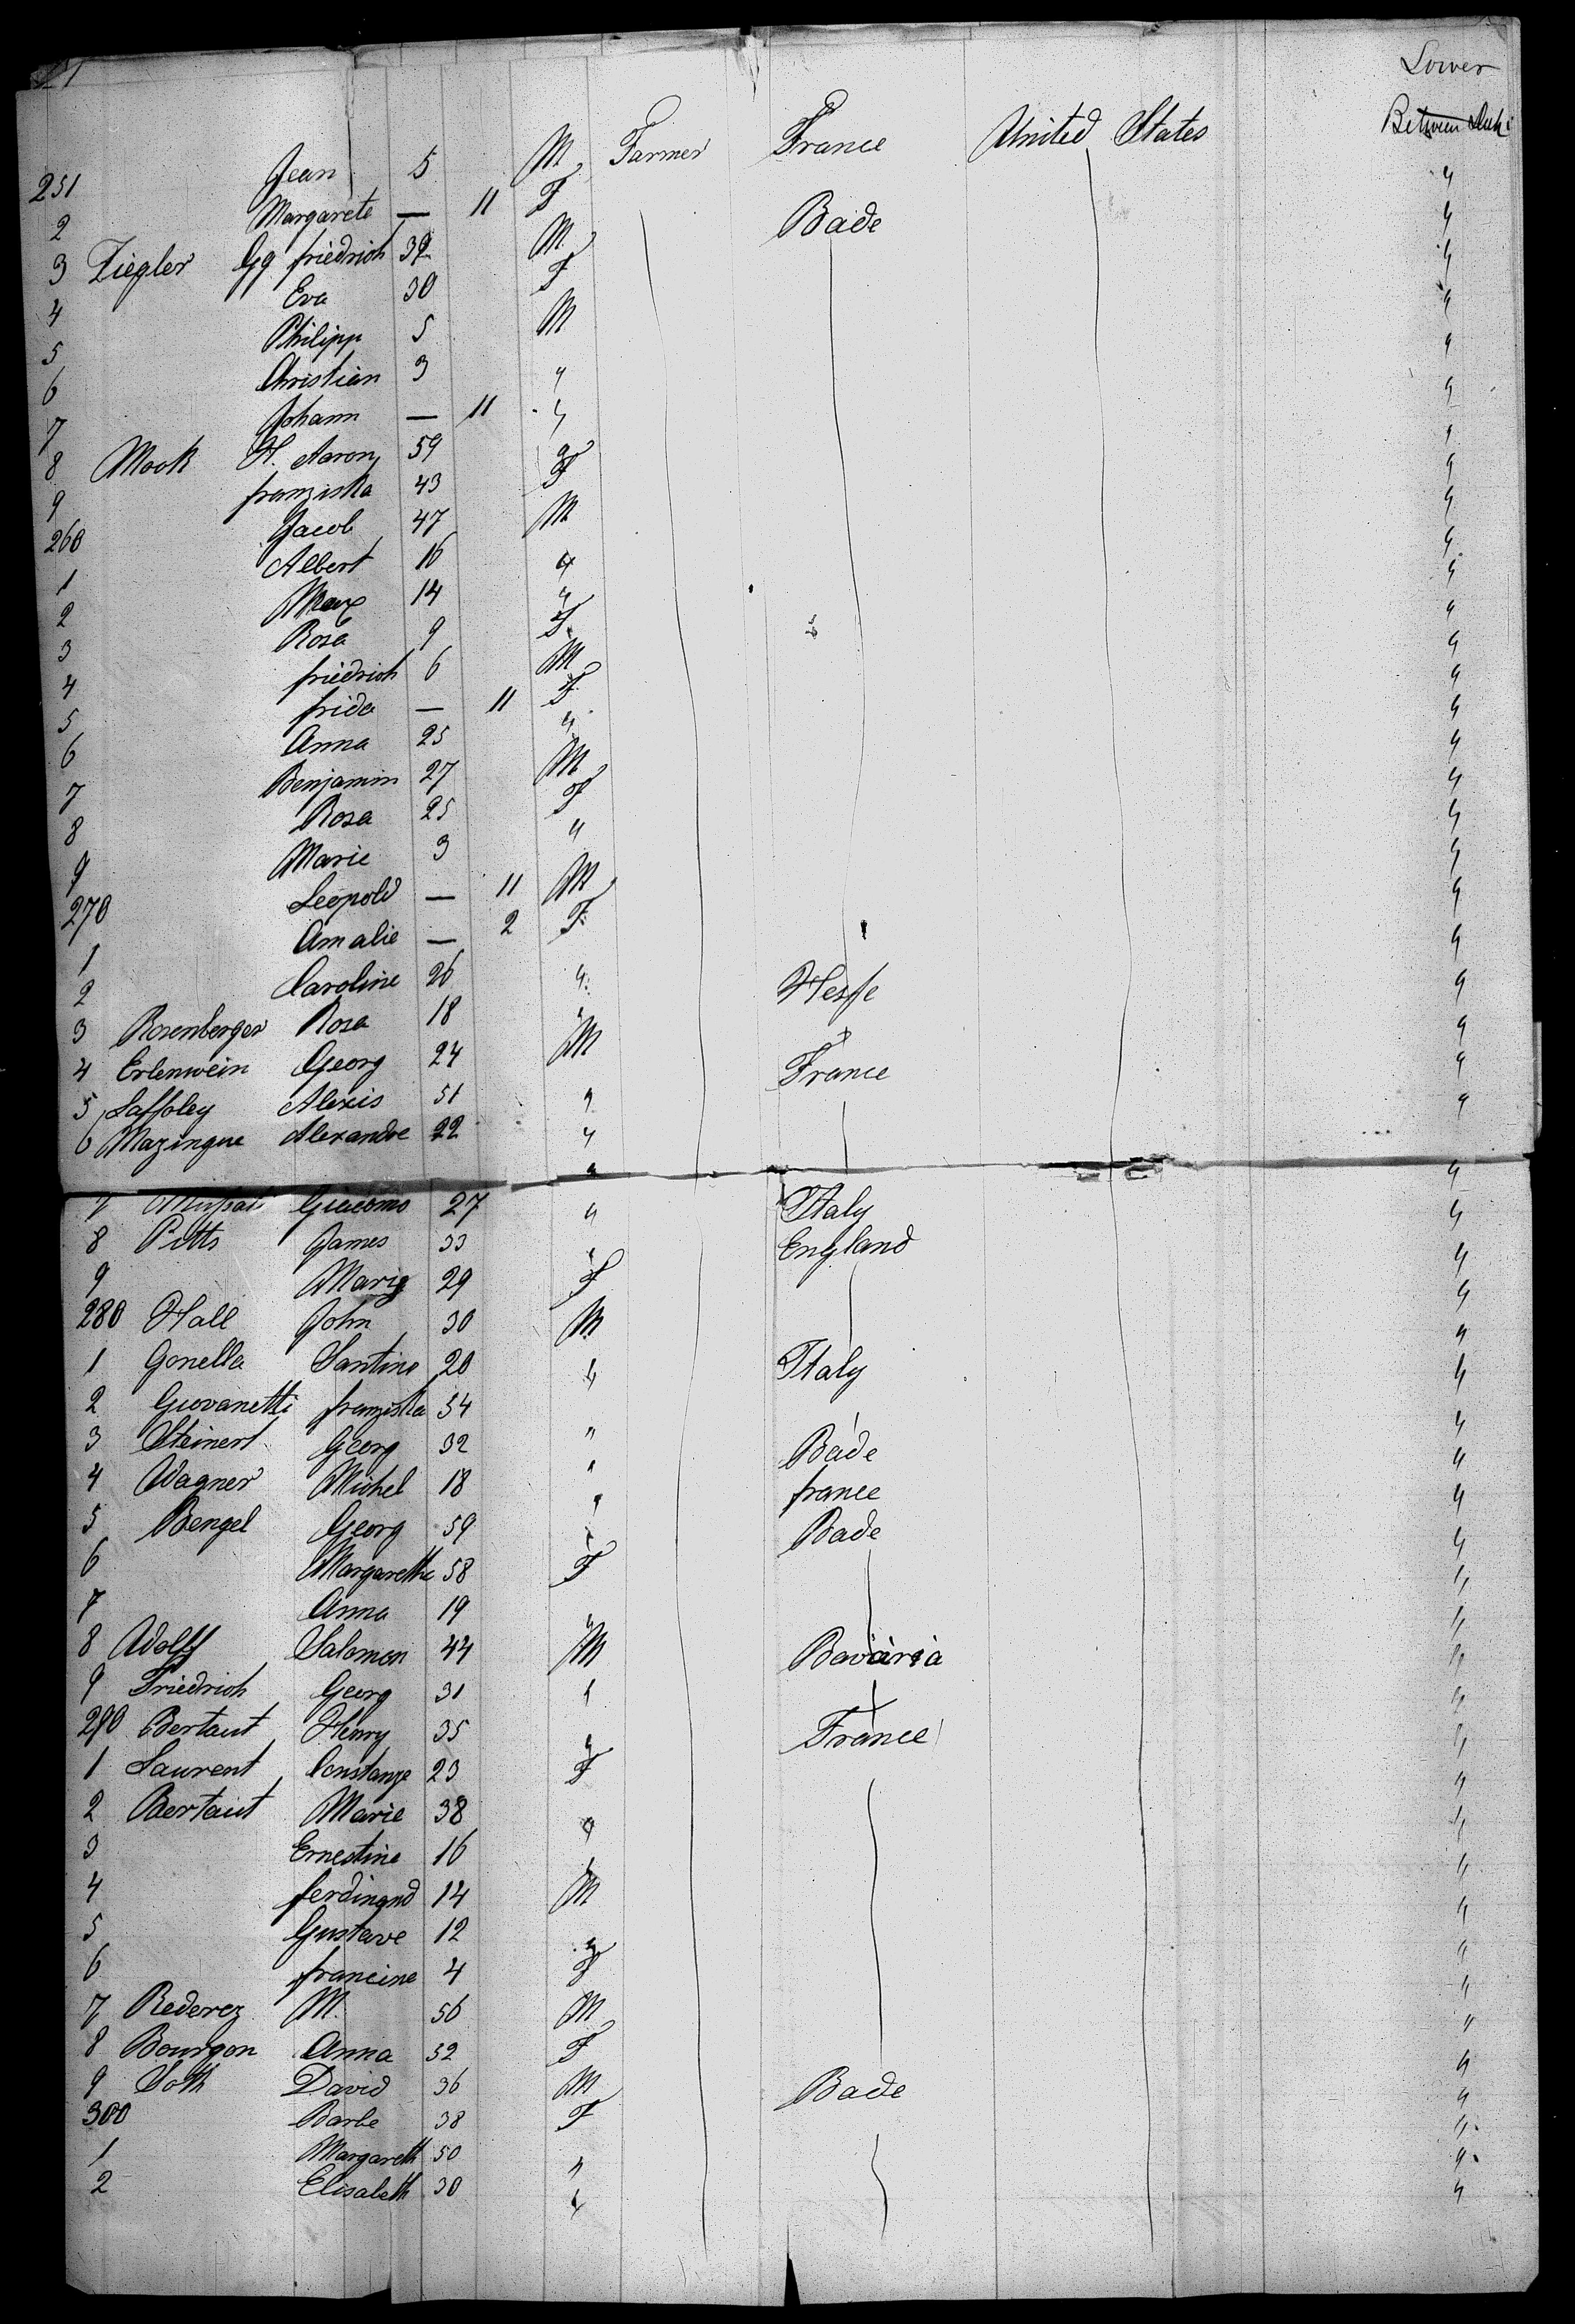 Lower
251 Jean 5 M Farmer France United States Between Deck
2 Margarete — 11 F "
3 Ziegler Gg friedrich 39 M Bade "
4 Eva 30 F "
5 Philipp 5 M "
6 Christian 3 " "
7 Johann — 11 " "
8 Mook H. Aaron 59 " "
9 franziska 43 F "
260 Jacob 47 M "
1 Albert 16 " "
2 Max 14 " "
3 Rosa 9 F "
4 friedrich 6 M "
5 frida — 11 F "
6 Anna 25 " "
7 Benjamin 27 M "
8 Rosa 25 F "
9 Marie 3 " "
270 Leopold — 11 M "
1 Amalie — 2 F "
2 Caroline 26 " "
3 Rosenberger Rosa 18 " Hesse "
4 Erlenwein Georg 24 M "
5 Laffoley Alexis 51 " France "
6 Mazingue Alexandre 22 " "
7 Giacomo 27 " Italy "
8 Pitts James 33 " England "
9 Marie 29 F "
280 Hall John 30 M "
1 Gonella Santino 20 " Italy "
2 Giovanetti franziska 34 " "
3 Steinert Georg 32 " Bade "
4 Wagner Michel 18 " france "
5 Bengel Georg 59 " Bade "
6 Margaretha 58 F "
7 Anna 19 " "
8 Wolff Salomon 44 M Bavaria "
9 Friedrich Georg 31 " "
290 Bertaut Henry 35 " France "
1 Laurent Constanze 23 F "
2 Bertaut Marie 38 " "
3 Ernestine 16 " "
4 ferdinand 14 M "
5 Gustave 12 " "
6 francine 4 F "
7 Rederez M. 56 M "
8 Bourgon Anna 52 F "
9 Voth David 36 M Bade "
300 Barbe 38 F "
1 Margareth 50 " "
2 Elisabeth 30 " "